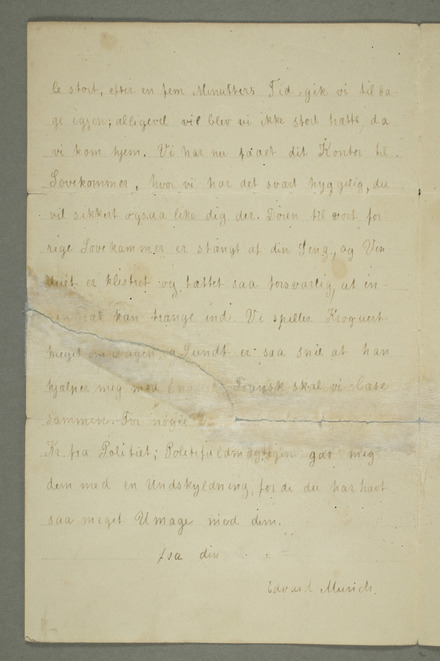 le stort, efter en fem Minutters Tid gik vi tilba-
ge igjen; alligevel vel blev vi ikke stort vaate da
vi kom hjem. Vi har nu faaet dit Kontor til
Sovekammer, hvor vi har det svært hyggelig, du
vil sikkert ogsaa like dig der. Døren til vort for
rige Sovekammer er stængt af din Seng, og Ven
duet er klistret og tættet saa forsvarlig, at in-
kan trænge ind. Vi spiller Kroquert
meget om Dagen. Lundt er saa snil at han
hjælper meg med Fransk skal vi læse
sammen. For nogle
Kr. fra Politiet; Politifuldmægtigen gav meg
dem med en Undskyldning, for de du har havt
saa meget Umage med dem.
fra din
Edvard Munch.